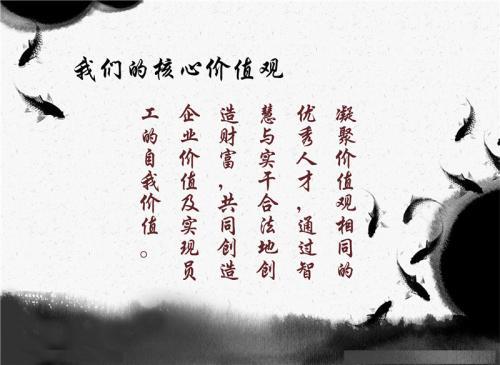 我们的核心价值观
凝聚价值观相同的
优秀人才，通过智
慧与实干合法地创
造财富，共同创造
企业价值及实现员
工的自我价值。